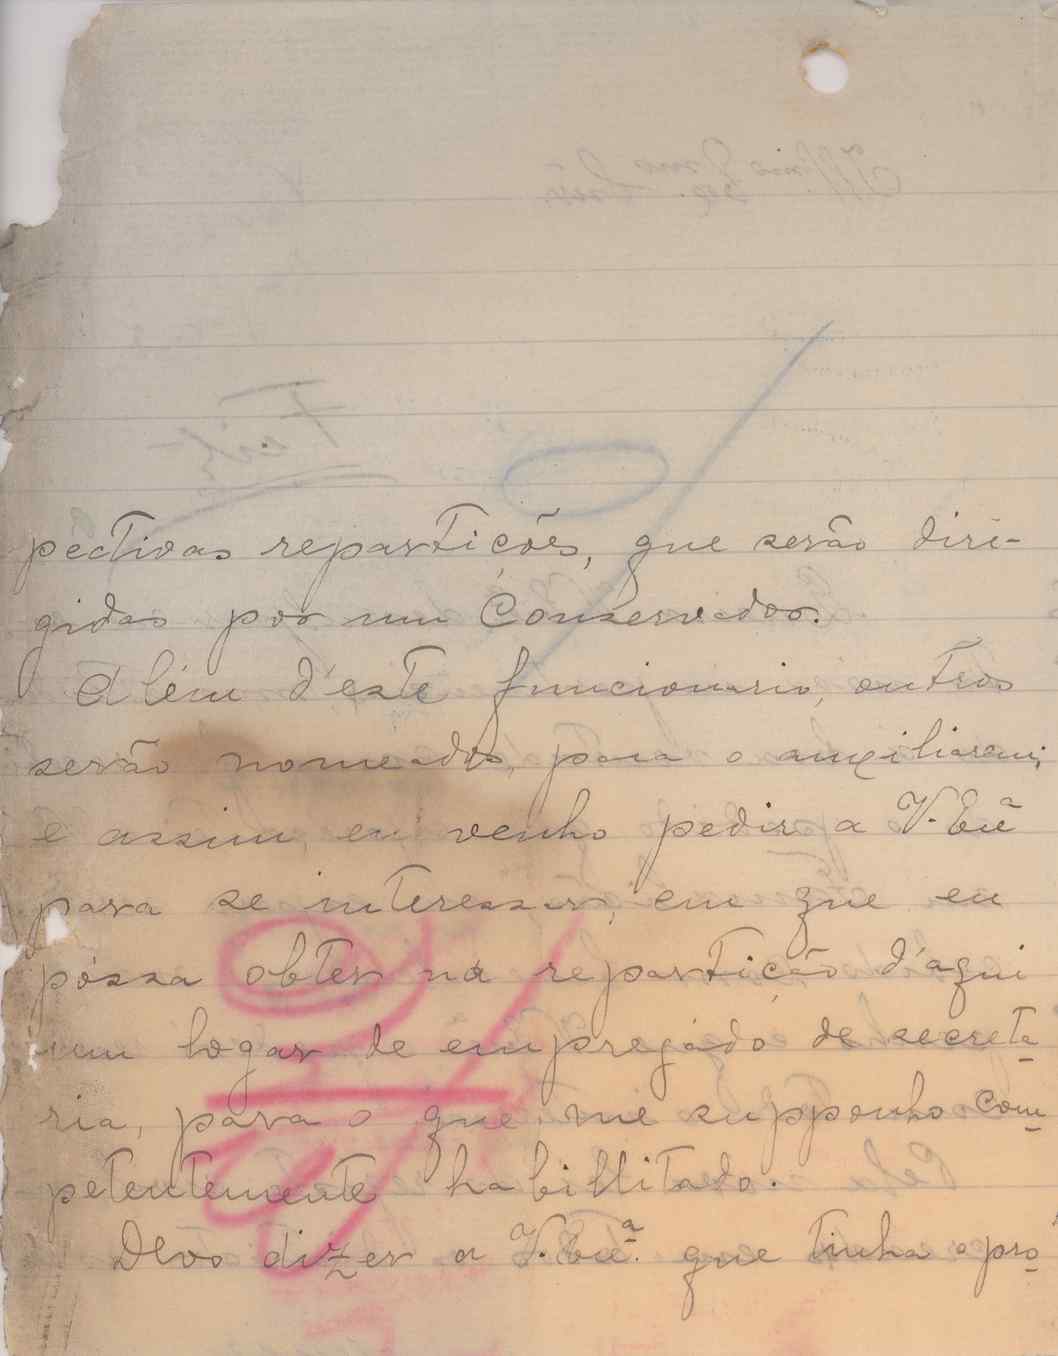 pectivas repartições, que serão diri-
gidas por um Conservador.
Além d'este funcionario, outros
serão nomeados, para o auxiliarem;
e assim, eu venho pedir a V. Exª
para se interessar, em que eu
póssa obter na repartição d'aqui
um logar de empregádo de secreta-
ria, para o que me supponho com-
petentemente habillitado.
Devo dizer a V. Exª. que tinha o pro-